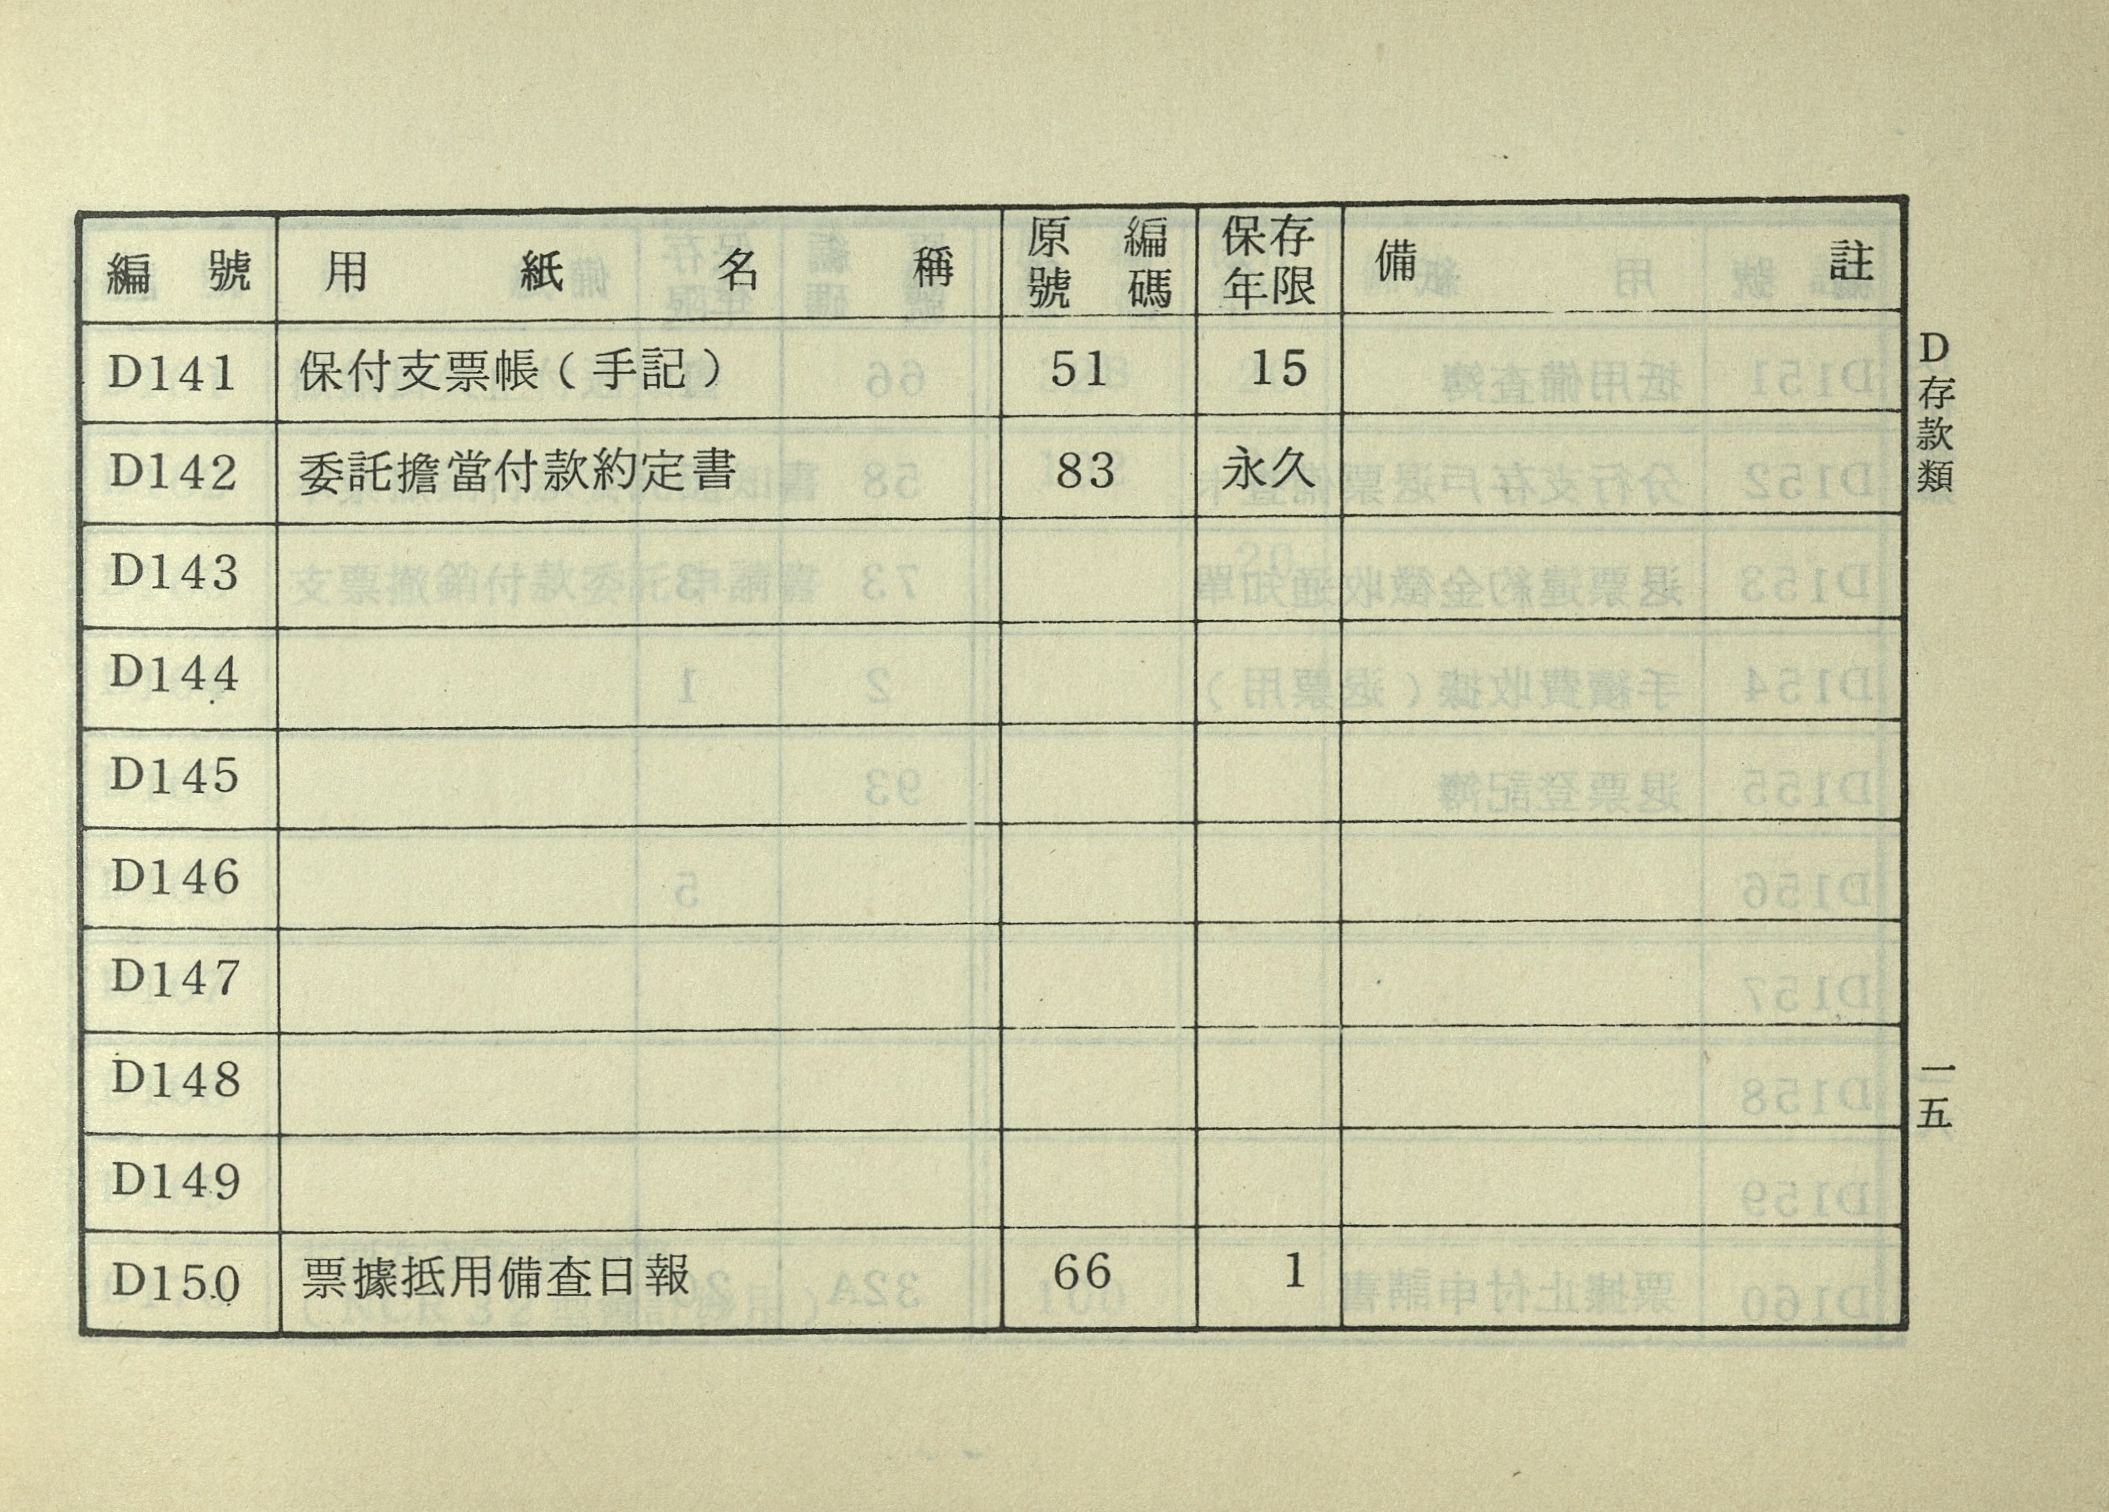 編號 用紙名稱 原編號碼 保存年限 備註
D141 保付支票帳(手記) 51 15
D142 委託擔當付款約定書 83 永久
D143
D144
D145
D146
D147
D148
D149
D150 票據抵用備查日報 66 1
D存款類
一五